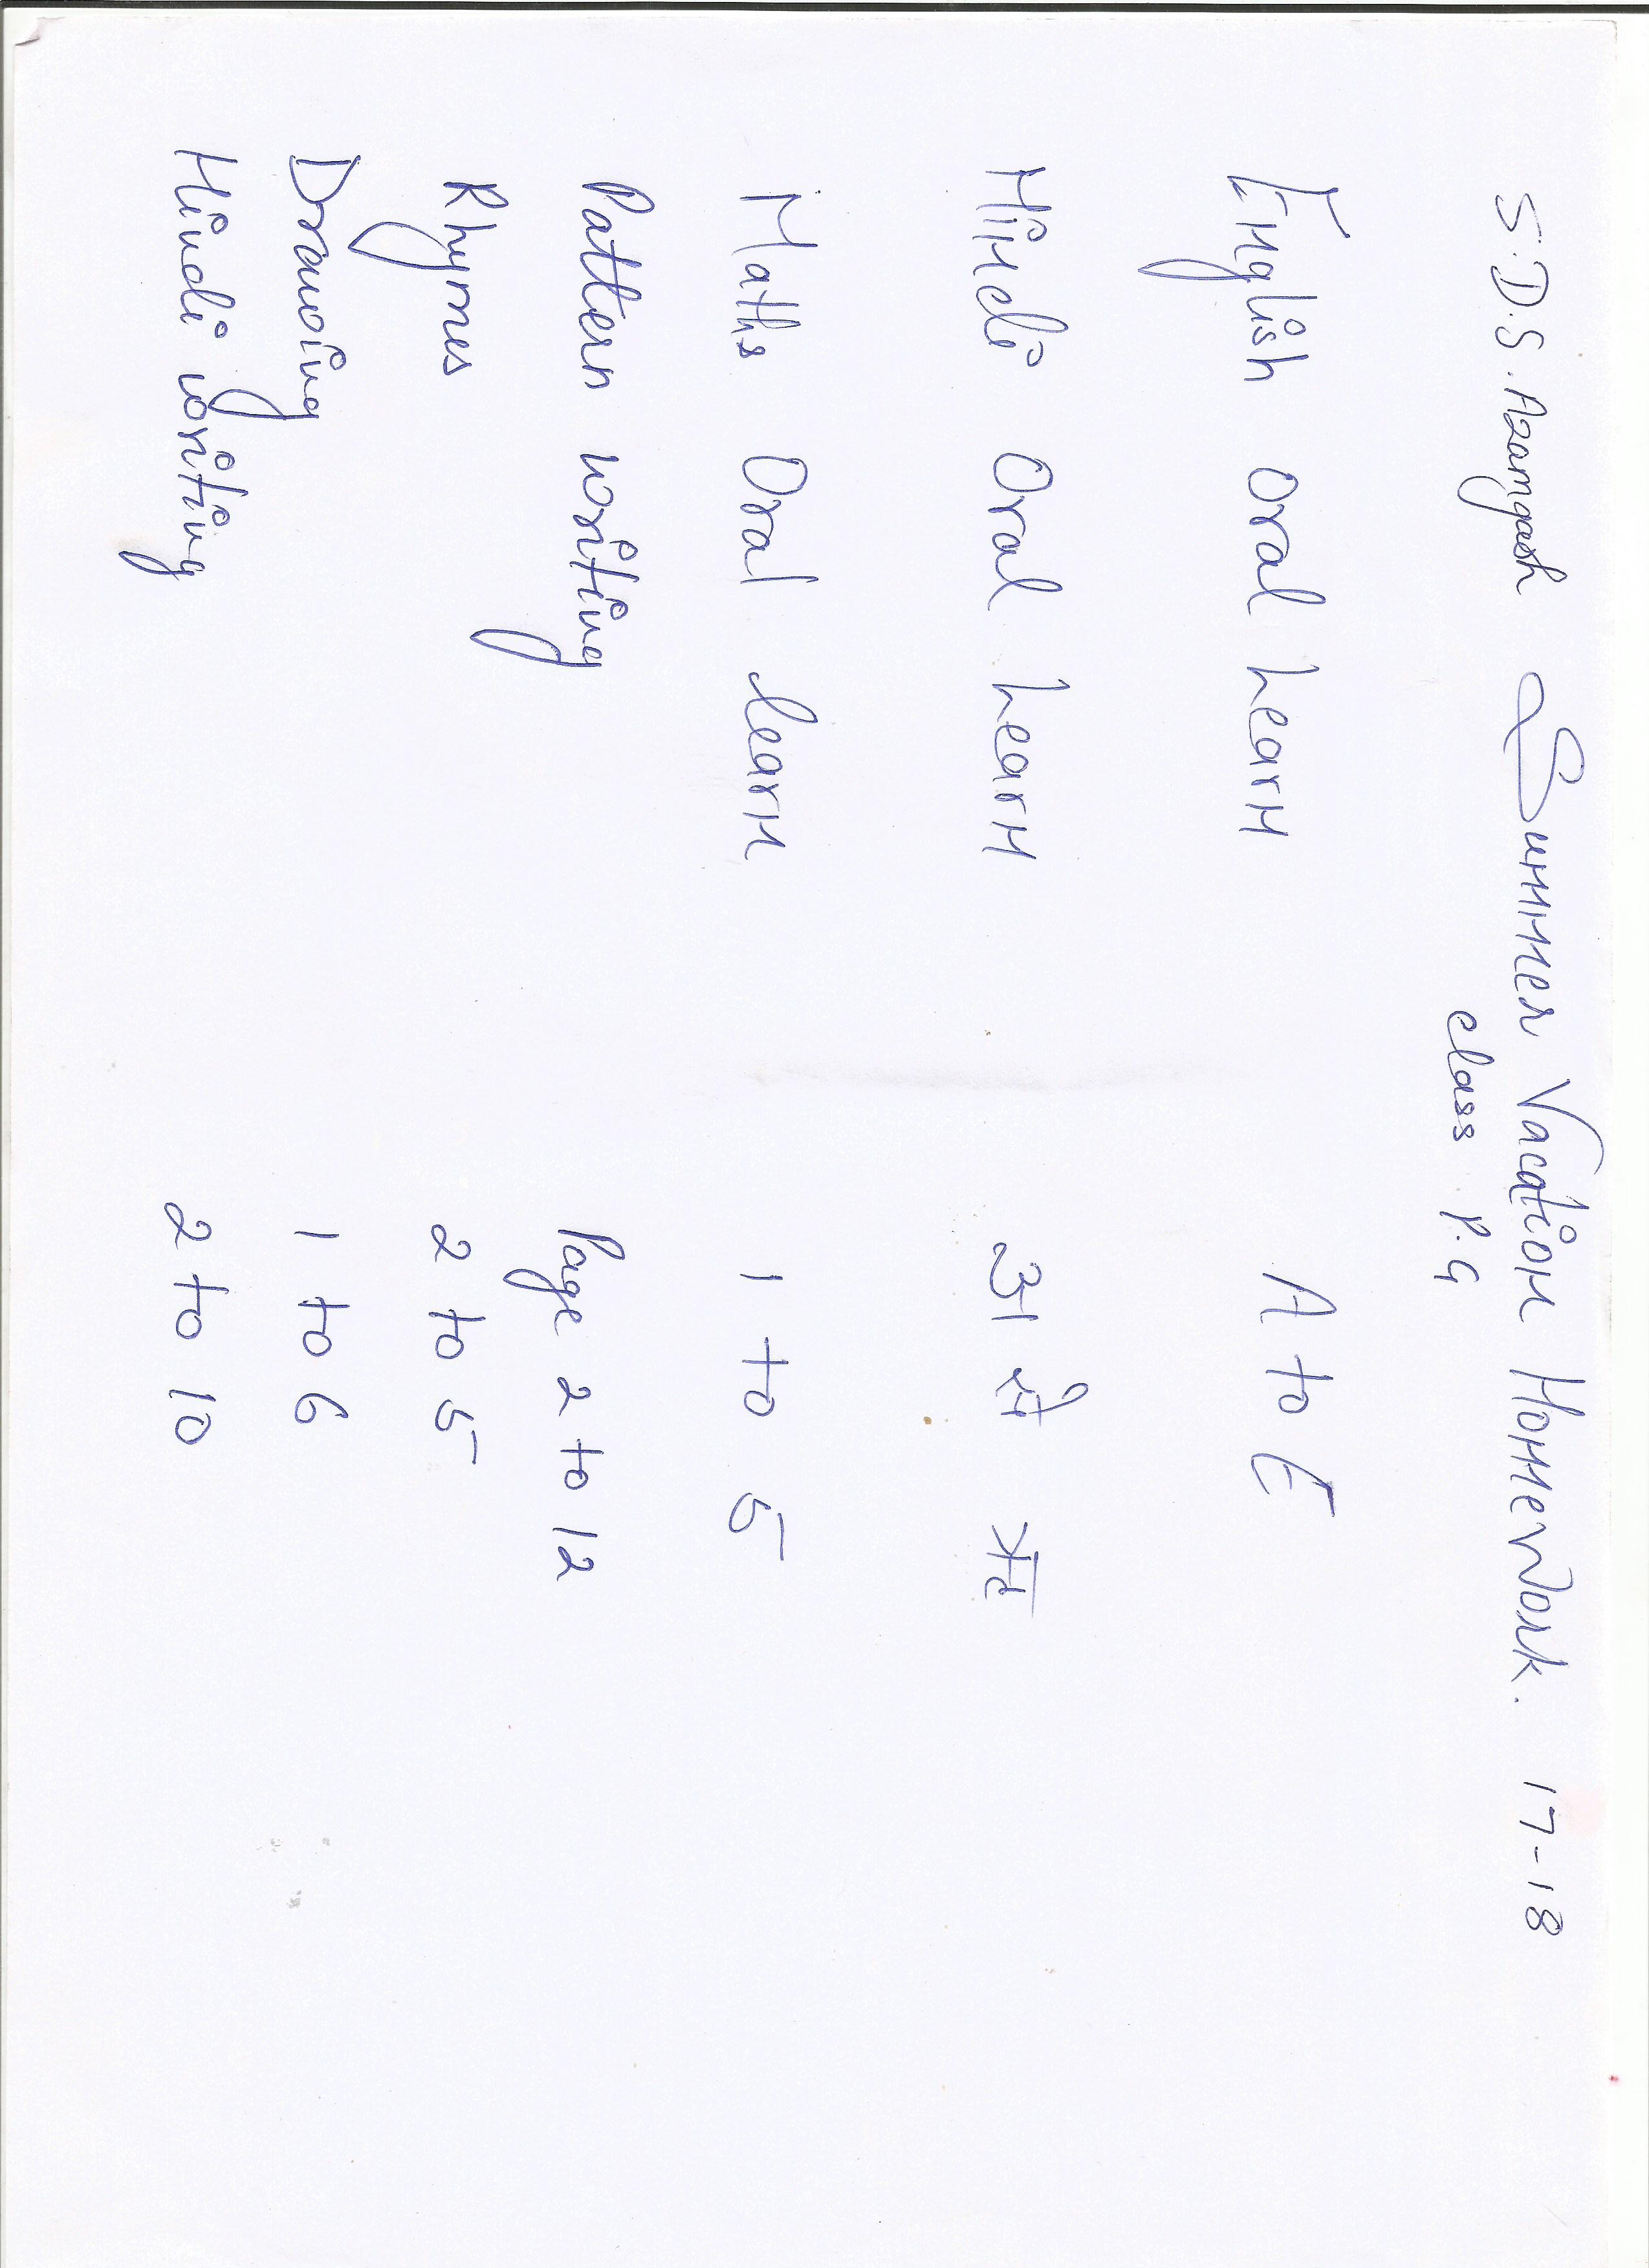 S.D.S. Azamgarh Summer Vacation Homework. 17-18
class P.G
English oral Learn A to E
Hindi Oral Learn अ से ऋ
Maths Oral learn 1 to 5
Pattern writing Page 2 to 12
Rhymes 2 to 5
Drawing 1 to 6
Hindi writing 2 to 10